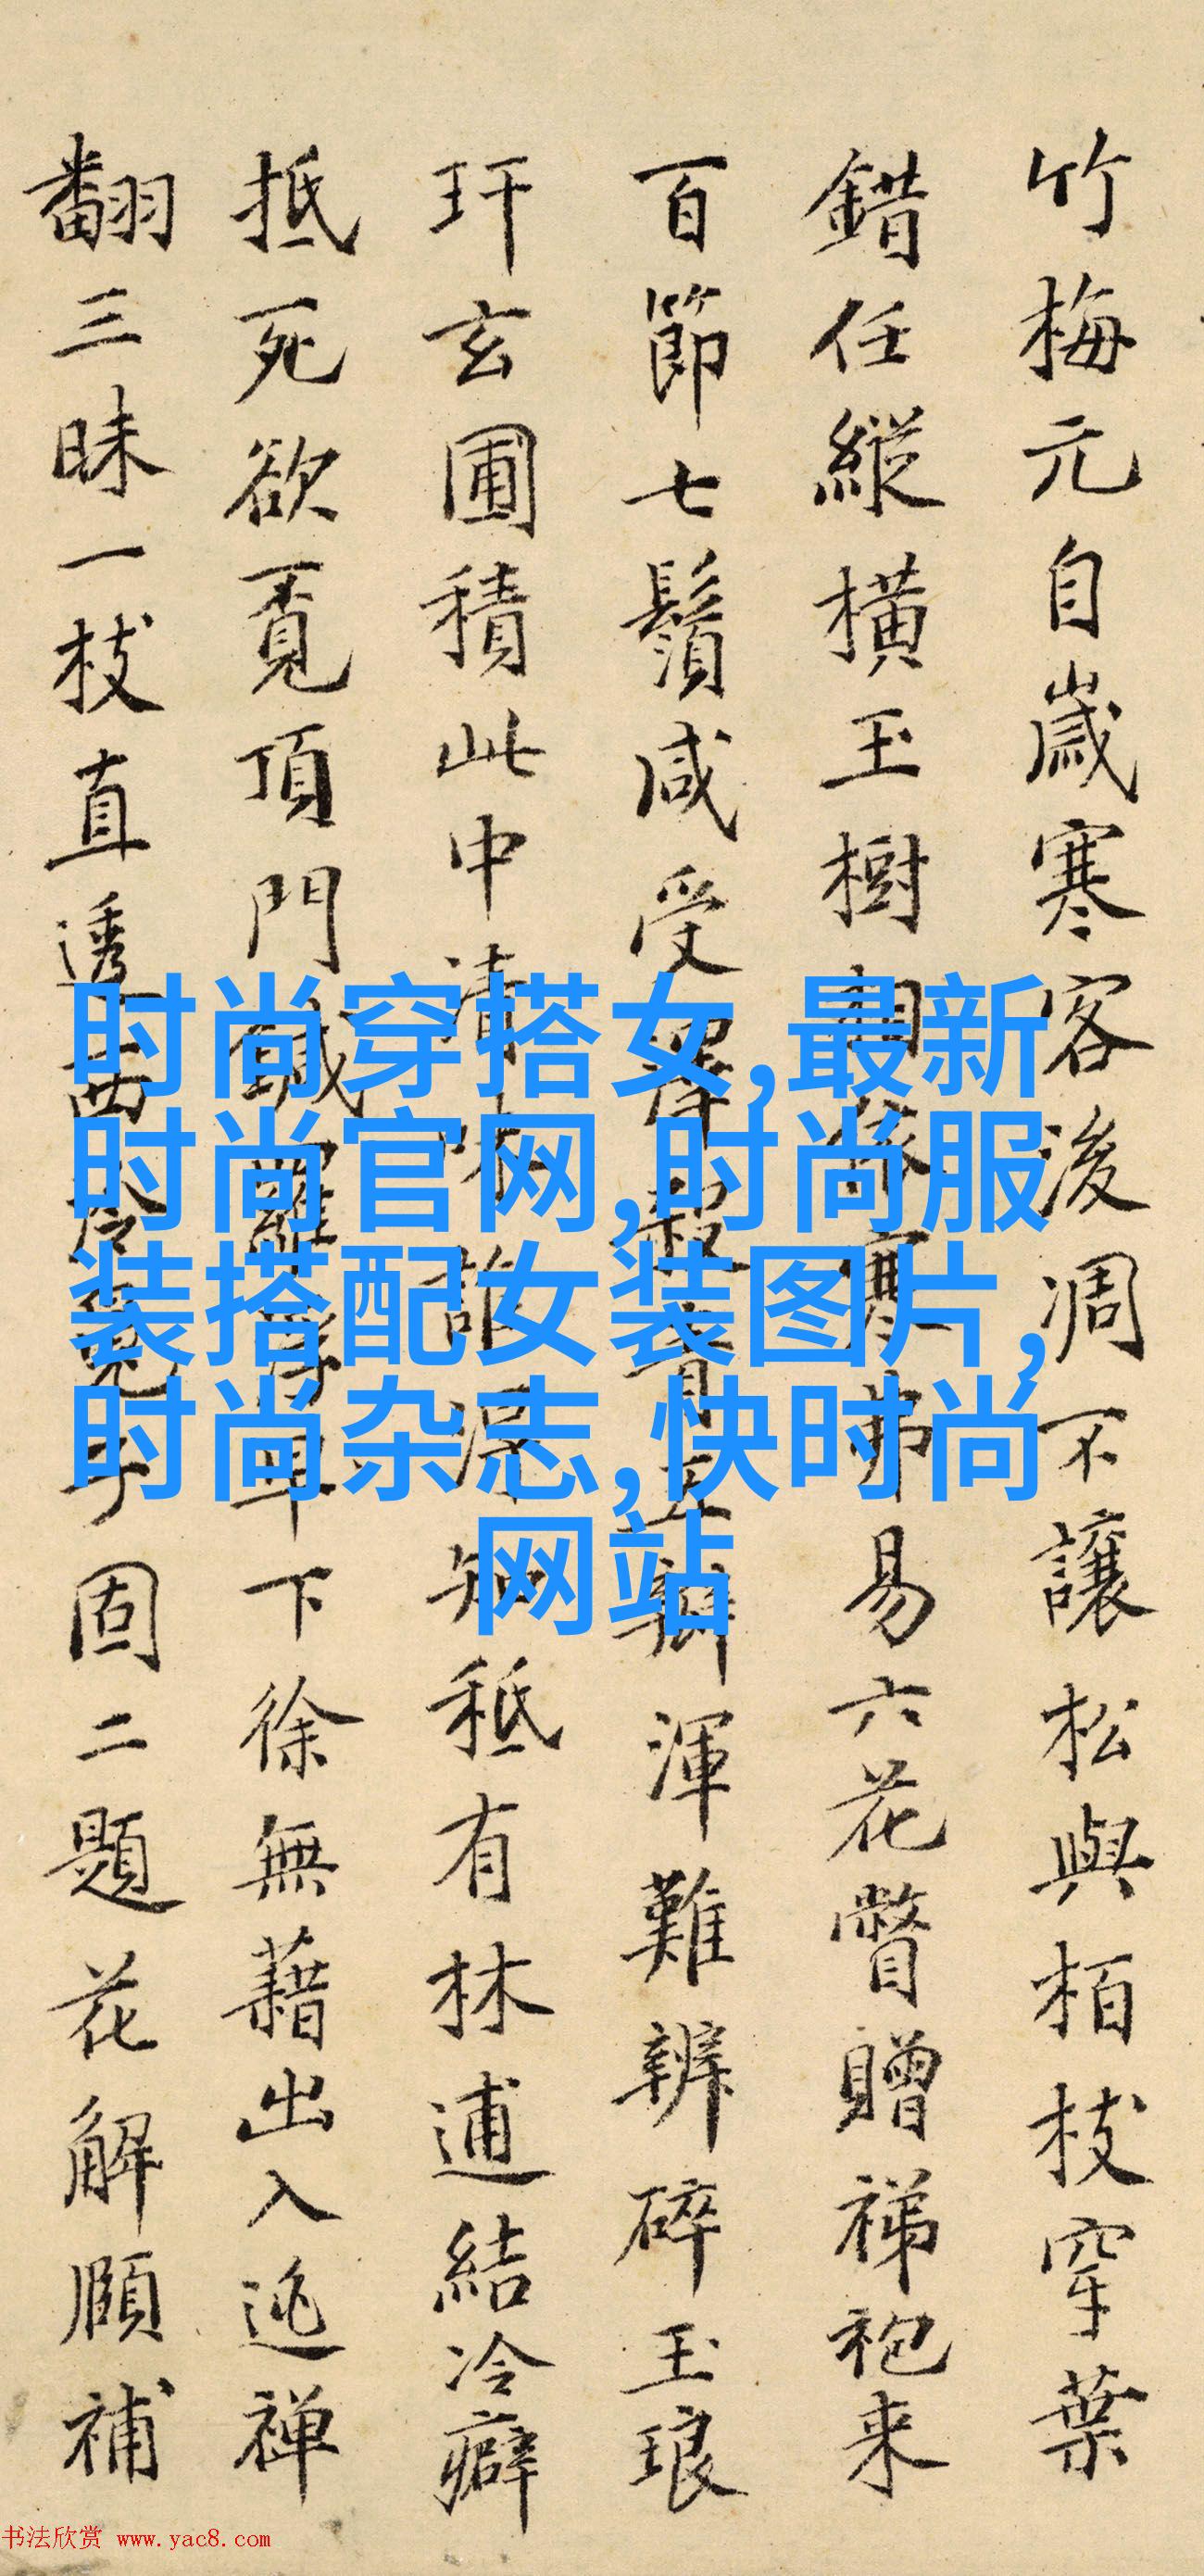 竹梅元自歲寒客後凋不讓松與栢枝穿葉
錯任縱橫玉樹寒弗易六花瞥贈袍来
百節七鬚咸受渾難辨碎玉琅
玕玄圃積此中清味誰深知秪有林逋結冷癖
抵死欲覔頂門下徐無藉出入逃禅
翻三昧一枝直透西固二題花解頤補
时尚穿搭女,最新
时尚官网,时尚服
装搭配女装图片,
时尚杂志,快时尚
网站
书法欣赏 www.yac8.com